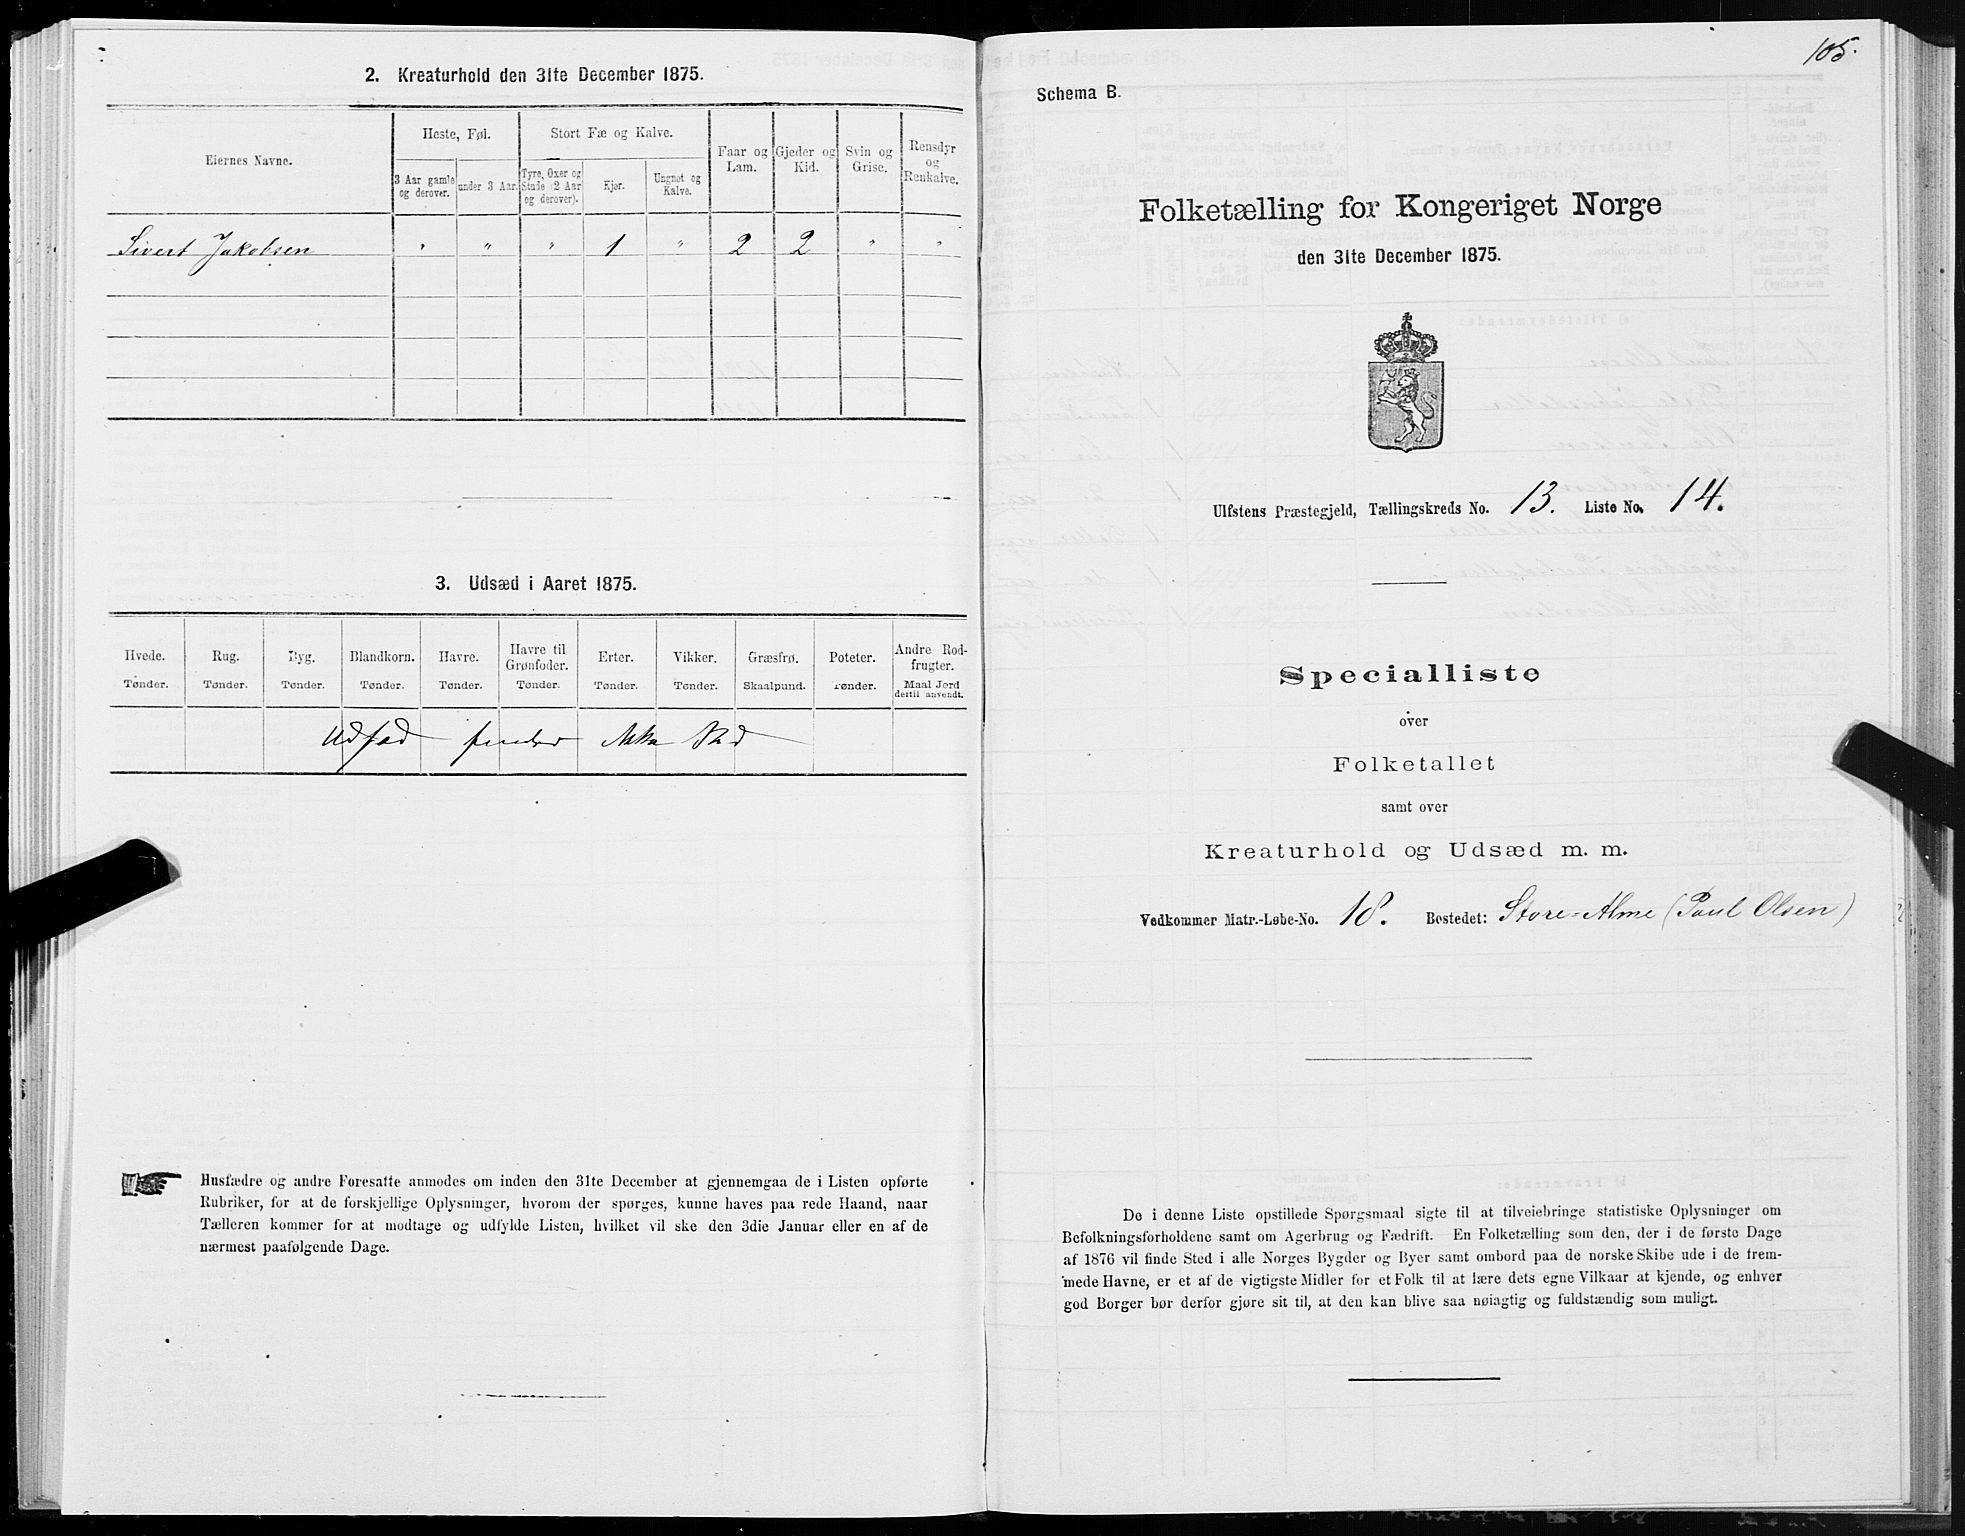 2. Kreaturhold den 31te December 1875.
Eiernes Navne.
Heste, Føl.
Stort Fæ og Kalve.
Faar og Lam.
Gjeder og Kid.
Svin og Grise.
Rensdyr og Renkalve.
3 Aar gamle og derover.
under 3 Aar.
Tyre, Oxer og Stude (2 Aar og derover).
Kjør.
Ungnøt og Kalve.
Sivert Jakobsen " " " 1 " 2 2 " "
3. Udsæd i Aaret 1875.
Hvede. Rug. Byg. Blandkorn. Havre. Havre til Grønfoder. Erter. Vikker. Græsfrø. Poteter. Andre Rodfrugter.
Tønder. Tønder. Tønder. Tønder. Tønder. Tønder. Tønder. Tønder. Skaalpund. Tønder. Maal Jord dertil anvendt.
Udsæd finder ikke Sted
Husfædre og andre Foresatte anmodes om inden den 31te December at gjennemgaa de i Listen opførte
Rubriker, for at de forskjellige Oplysninger, hvorom der spørges, kunne haves paa rede Haand, naar
Tælleren kommer for at modtage og udfylde Listen, hvilket vil ske den 3die Januar eller en af de
nærmest paafølgende Dage.
105.
Schema B.
Folketælling for Kongeriget Norge
den 31te December 1875.
Ulfstens Præstegjeld, Tællingskreds No. 13. Liste No. 14.
Specialliste
over
Folketallet
samt over
Kreaturhold og Udsæd m. m.
Vedkommer Matr.-Løbe-No. 18. Bostedet: Store-Alme (Paul Olsen)
De i denne Liste opstillede Spørgsmaal sigte til at tilveiebringe statistiske Oplysninger om
Befolkningsforholdene samt om Agerbrug og Fædrift. En Folketælling som den, der i de første Dage
af 1876 vil finde Sted i alle Norges Bygder og Byer samt ombord paa de norske Skibe ude i de frem-
mede Havne, er et af de vigtigste Midler for et Folk til at lære dets egne Vilkaar at kjende, og enhver
god Borger bør derfor gjøre sit til, at den kan blive saa nøiagtig og fuldstændig som muligt.